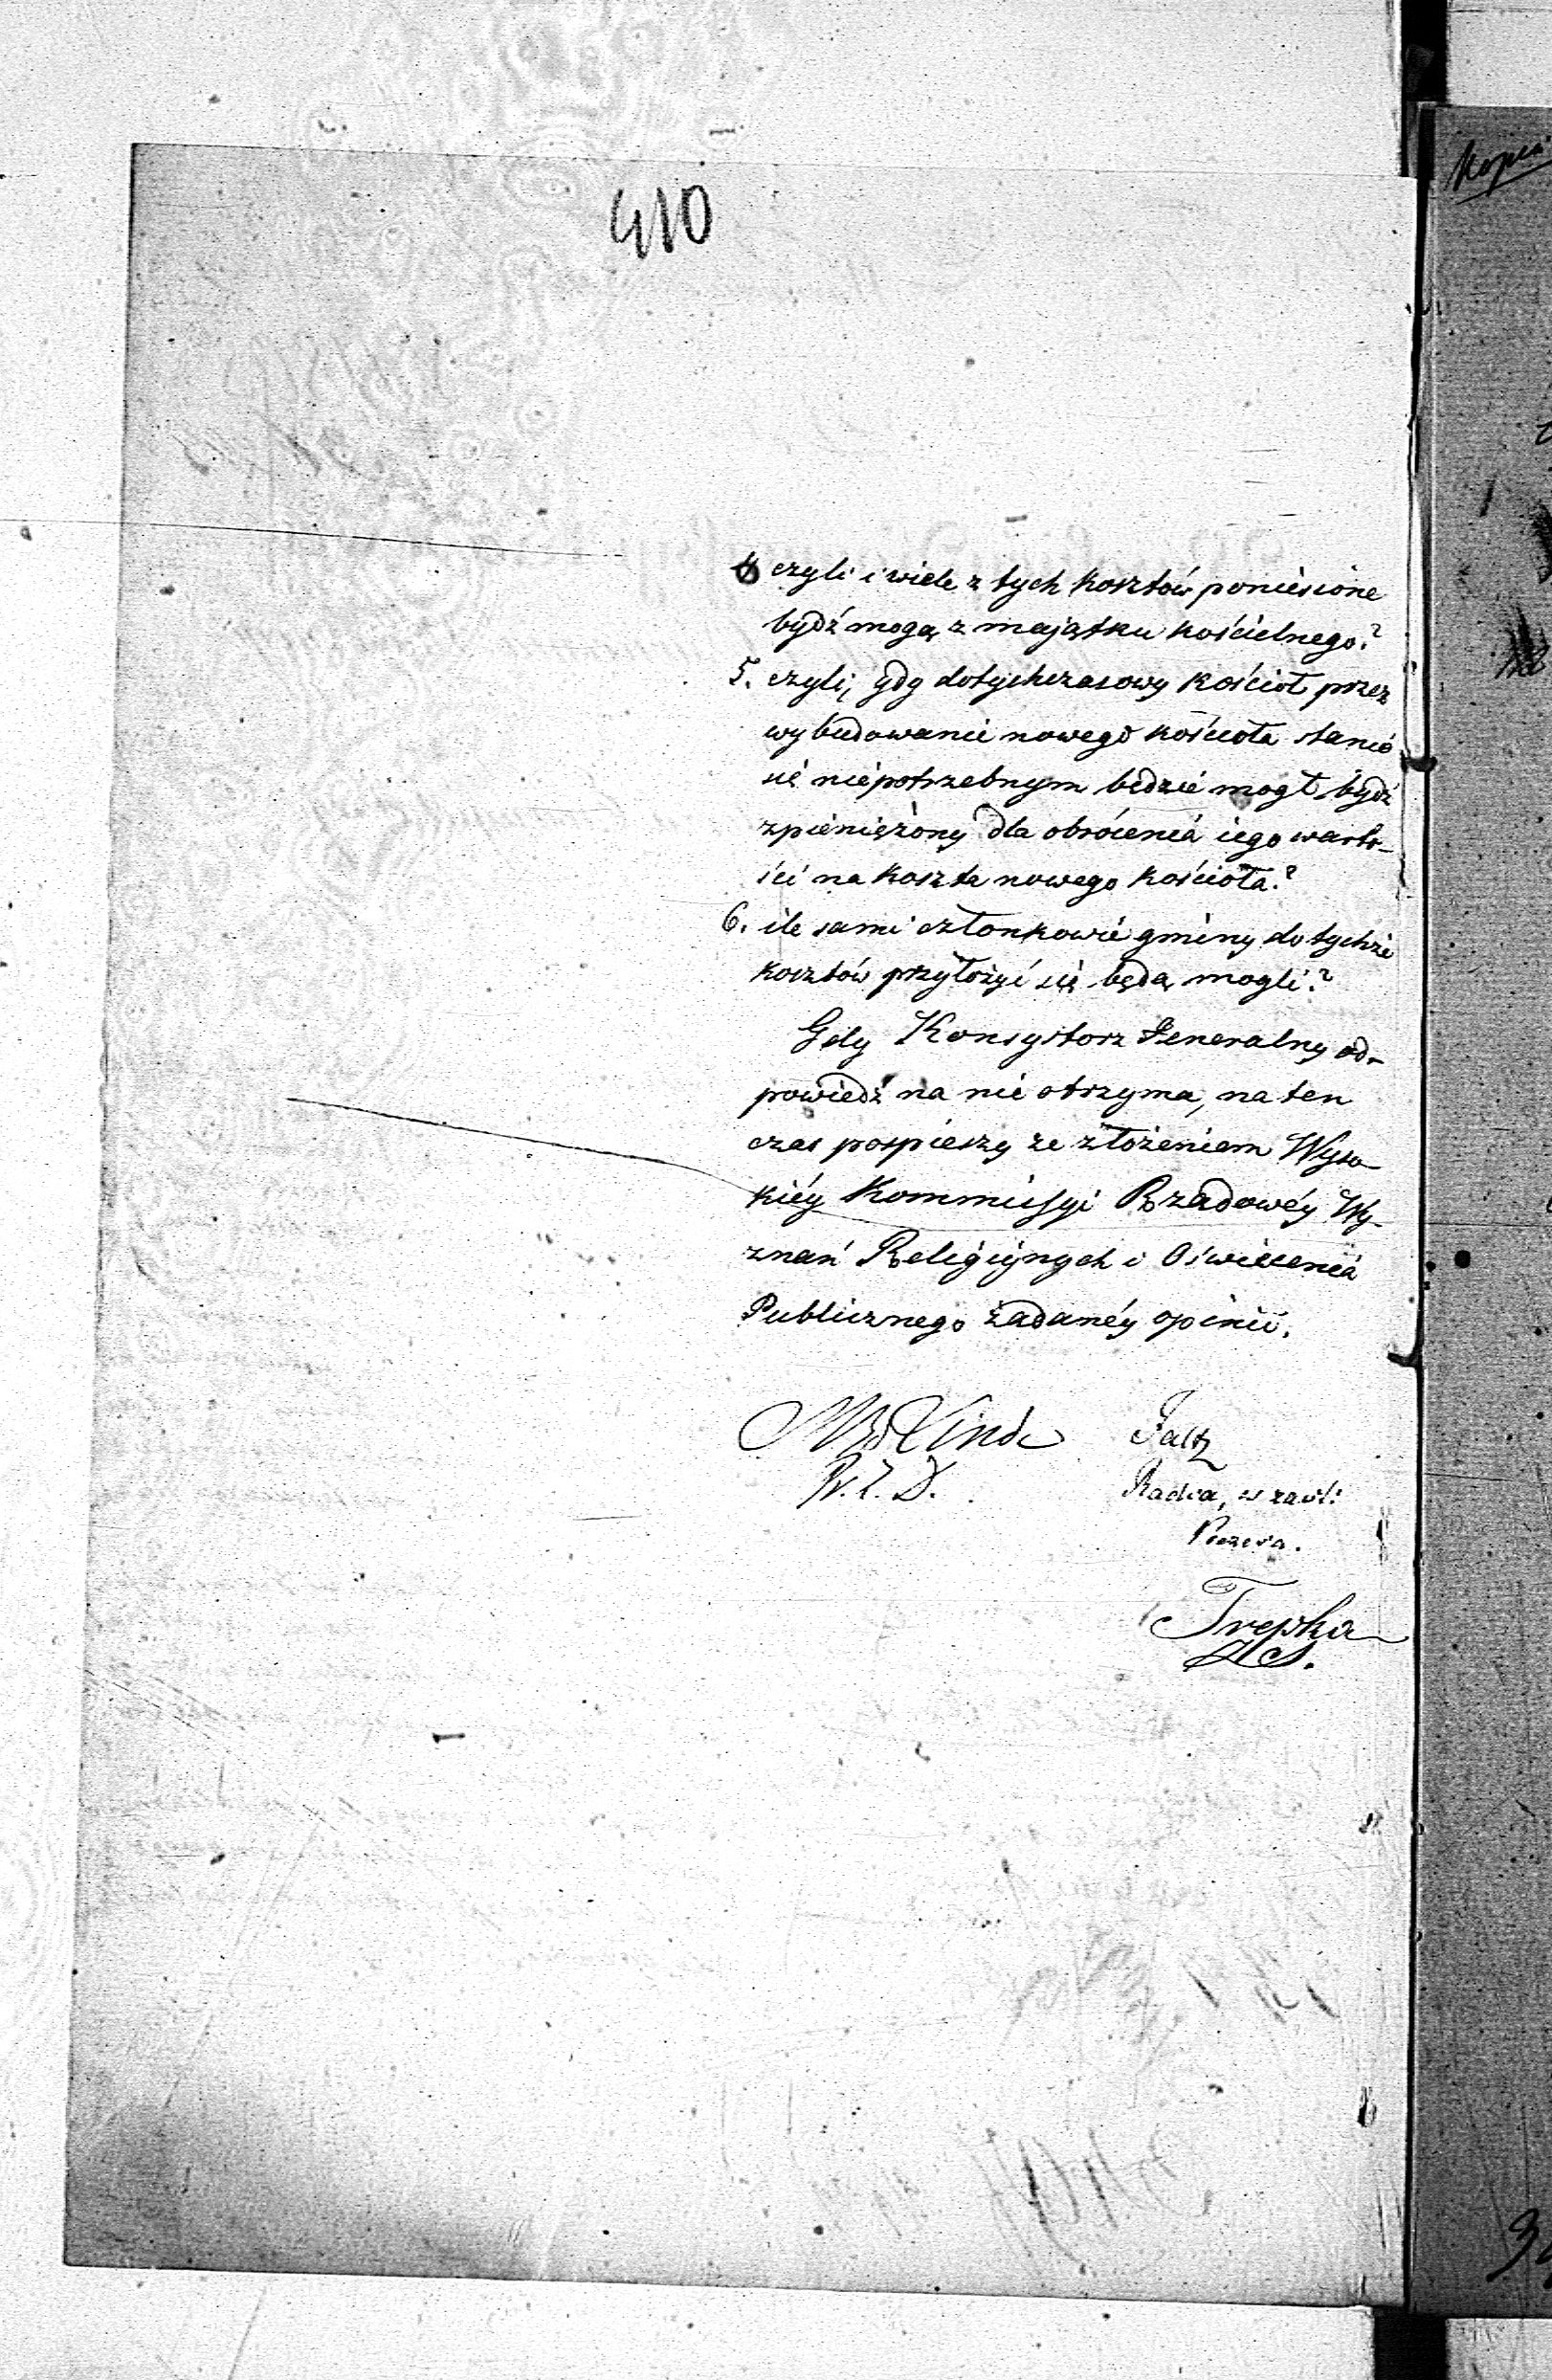 410
4 czyli i wiele z tych kosztów poniesione
bydź mogą z majątku kościelnego?
5. czyli, gdy dotychczasowy kościoł przez
wybudowanie nowego kościoła stanie
się niepotrzebnym będzie mogł bydź
zpieniężony dla obrócenia iego warto-
ści na koszta nowego kościoła?
6. ile sami członkowie gminy do tychże
kosztów przyłożyć się będą mogli?
Gdy Konsystorz Jeneralny od-
powiedź na nie otrzyma, na ten
czas pospieszy ze złożeniem Wyso-
kiéy Kommissyi Rządowéy Wy-
znań Religiynych i Oświecenia
Publicznego żądanéy opinii.
Linde
Radca, w zast:
Prezesa.
Trepka
Kopia